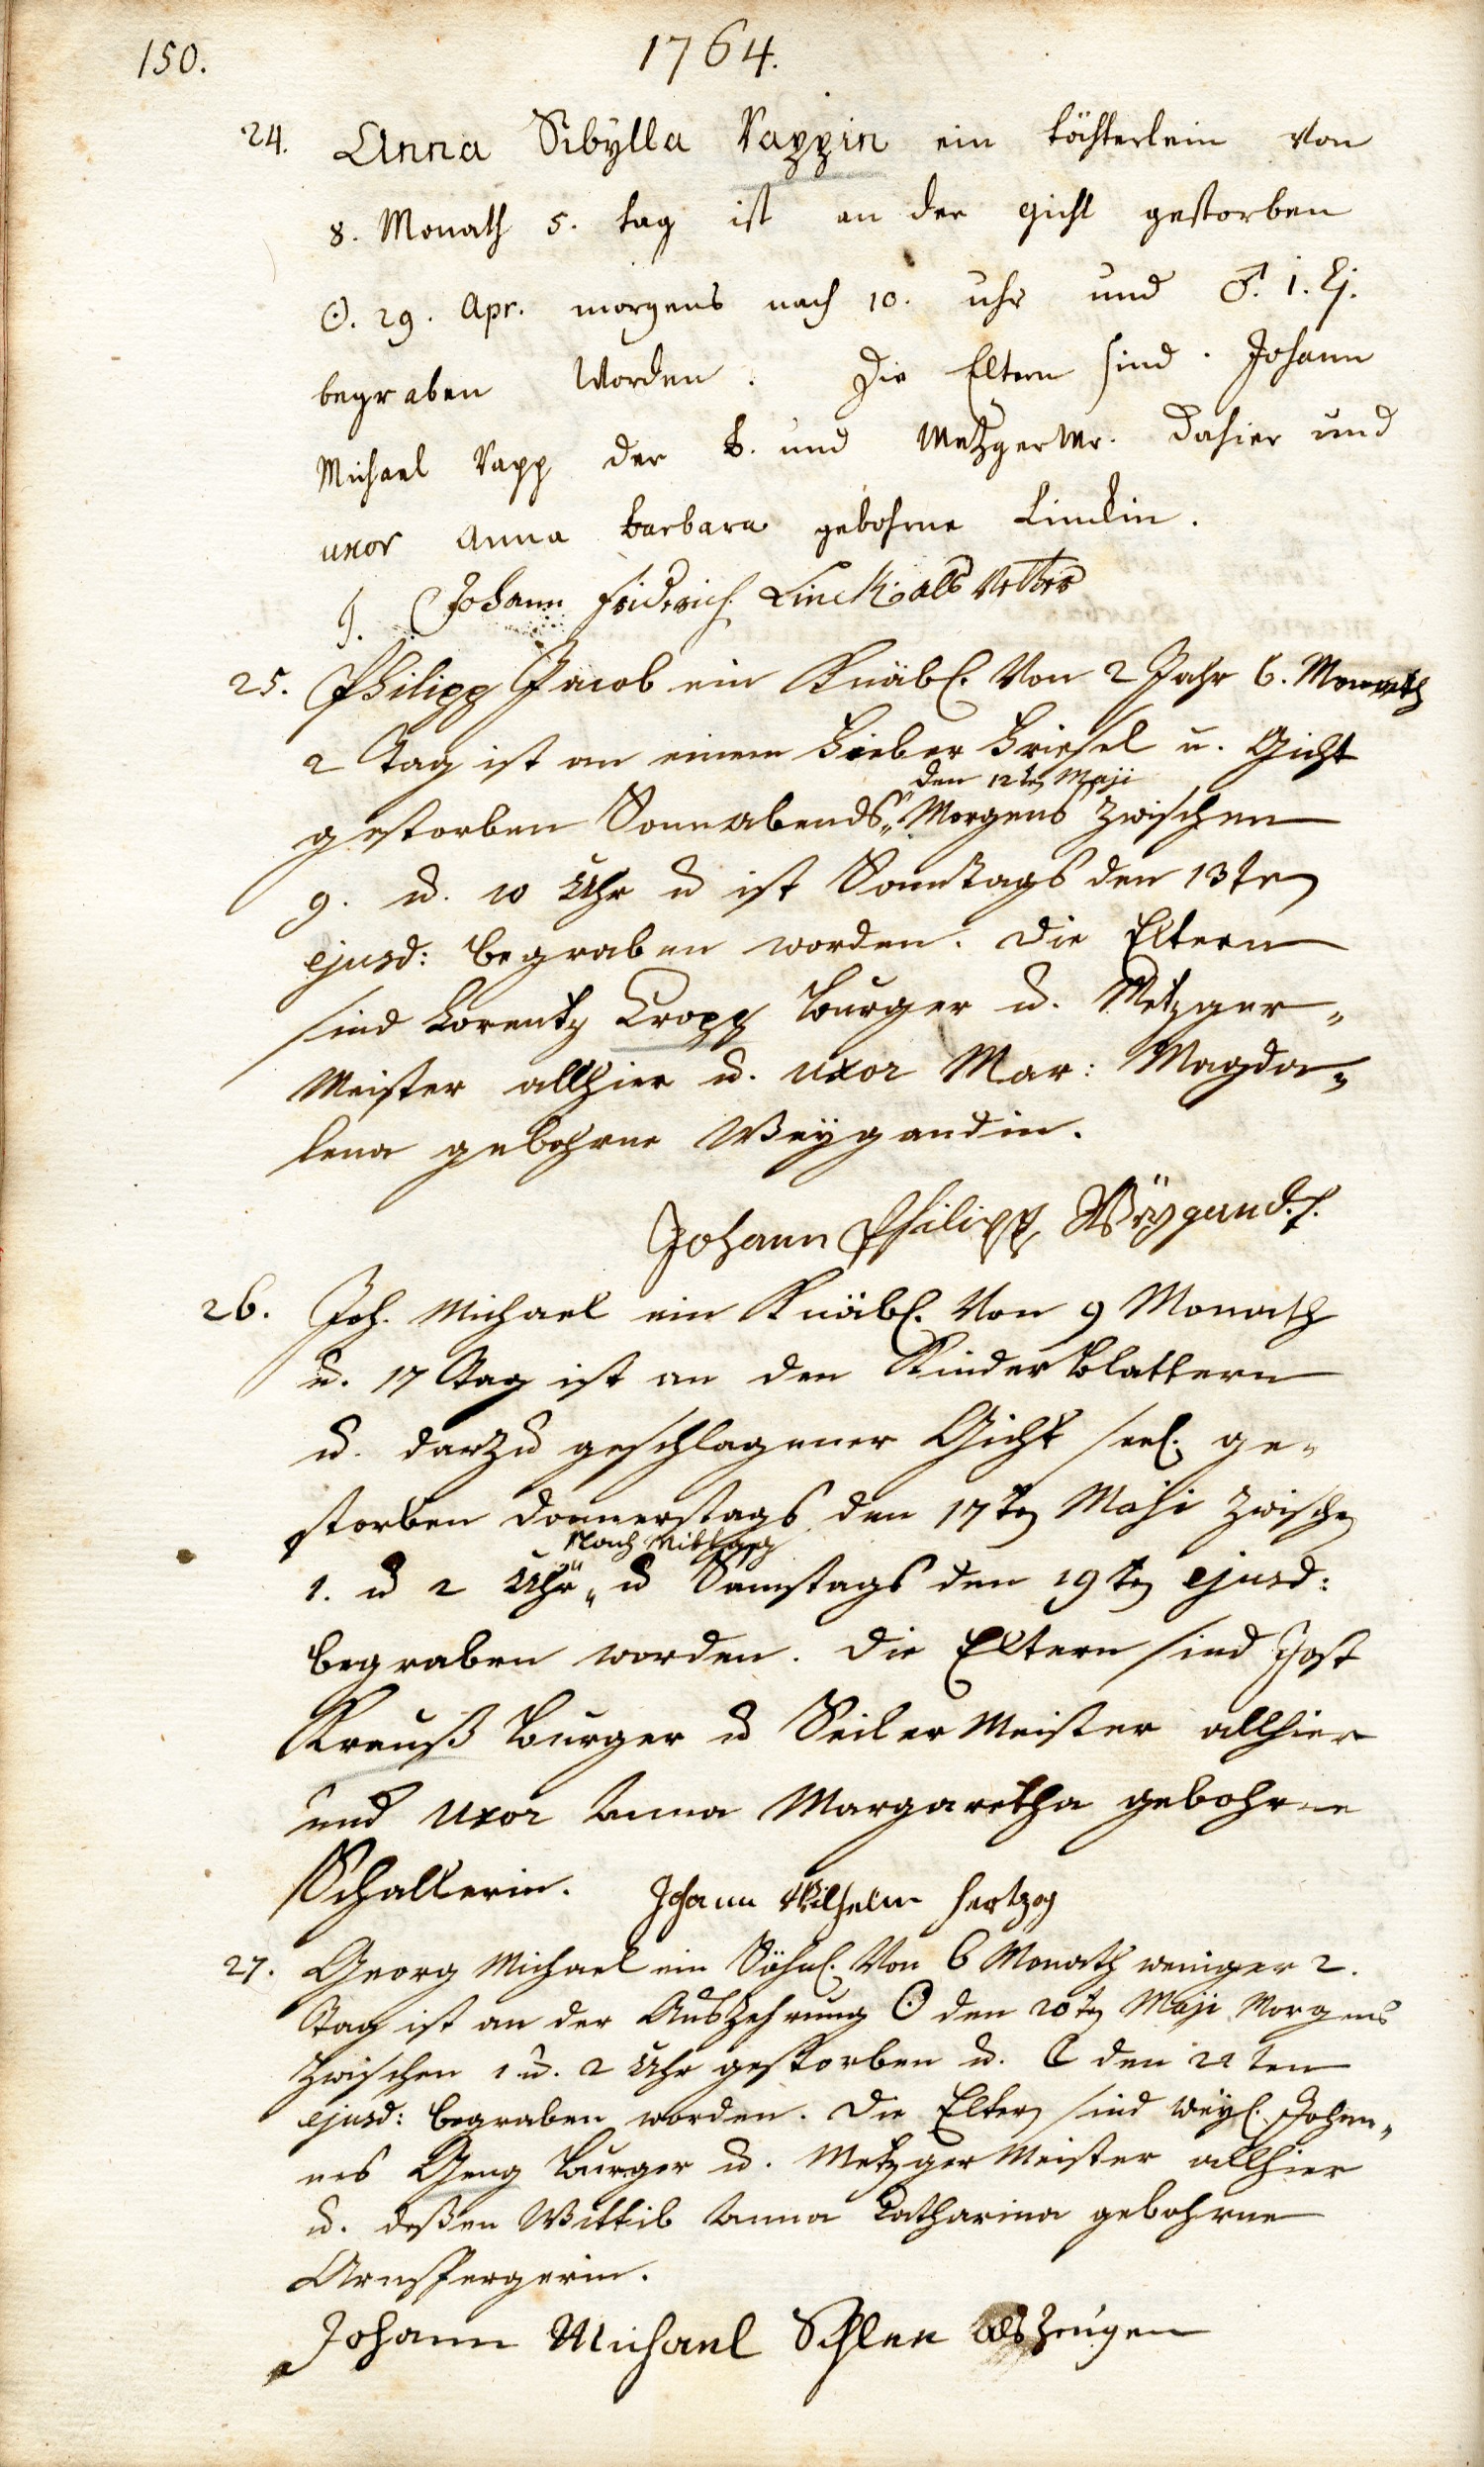 150.
1764.
24. Anna Sibylla Rappin ein töchterlein von
8. Monath 5. tag ist an der gicht gestorben
☉. 29. Apr. morgens nach 10. uhr und ♂. 1. Ej.
begraben worden. Die Eltern sind Johann
Michael Rapp der B. und Metzger Mr. dahier und
uxor Anna Barbara gebohrne Linckin.
J. Johann Friderich Linck als Vetter
25. Philipp Jacob ein Knäbl. von 2 Jahr 6. Monath
2 Tag ist an einem Fieber Friesel u. Gicht
den 12ten Maji
gestorben Sonnabends Morgens zwischen
9. u. 10 Uhr u ist Sonntags den 13ten
ejusd: begraben worden. Die Eltern
sind Lorentz Cropp Burger u. Metzger„
Meister allhier u. uxor Mar: Magda„
lena gebohrne Weygandin.
Johann Philipp Weygand.
26. Joh. Michael ein Knäbl. von 9 Monath
u. 17 Tag ist an den Kinder Blattern
u. darzu geschlagener Gicht seel. ge„
storben Donnerstags den 17ten Maji zwischen
Nach Mittag
1. u 2 Uhr u Samstags den 19ten ejusd:
begraben worden. Die Eltern sind Jost
Krauß Burger u Seiler Meister allhier
und Uxor Anna Margaretha gebohrne
Schallerin. Johann Wilhelm Hertzog
27. Georg Michael ein Söhnl. von 6 Monath weniger 2.
Tag ist an der Auszehrung ☉ den 20ten Maji Morgens
zwischen 1 u. 2 Uhr gestorben u. ☾ den 21ten
ejusd: begraben worden. Die Eltern sind weyl. Johan„
nes Geng Burger u. Metzger Meister allhier
u. deßen Wittib Anna Catharina gebohrne
Arnspergerin.
Johann Michael als Zeugen